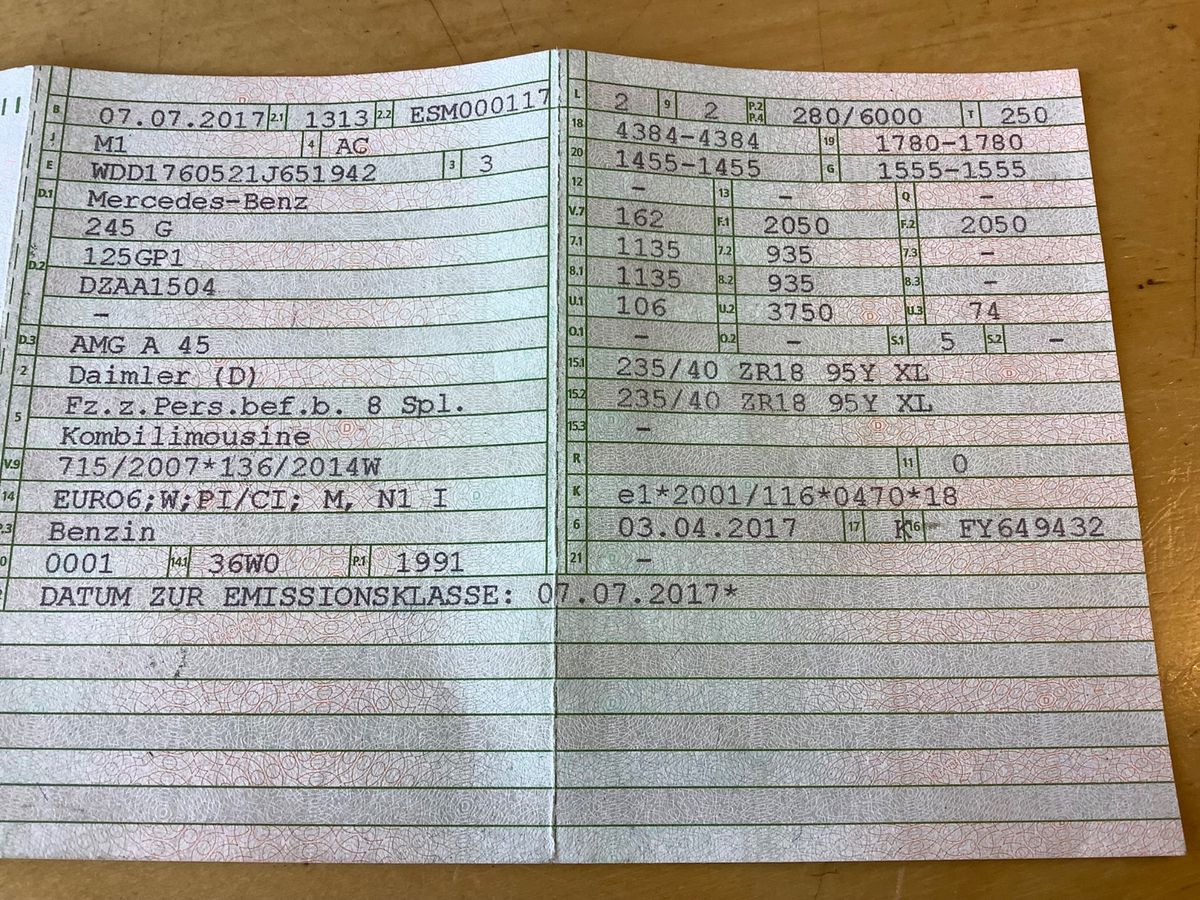 B 07.07.2017 2.1 1313 2.2 ESM000117
J M1 4 AC
E WDD1760521J651942 3 3
D.1 Mercedes-Benz
245 G
D.2 125GP1
DZAA1504
–
D.3 AMG A 45
2 Daimler (D)
5 Fz.z.Pers.bef.b. 8 Spl.
Kombilimousine
V.9 715/2007*136/2014W
14 EURO6;W;PI/CI; M, N1 I
P.3 Benzin
0001 14.1 36W0 P.1 1991
DATUM ZUR EMISSIONSKLASSE: 07.07.2017*
L 2 9 2 P.2 P.4 280/6000 T 250
18 4384-4384 19 1780-1780
20 1455-1455 G 1555-1555
12 – 13 – Q –
V.7 162 F.1 2050 F.2 2050
7.1 1135 7.2 935 7.3 –
8.1 1135 8.2 935 8.3 –
U.1 106 U.2 3750 U.3 74
O.1 – O.2 – S.1 5 S.2 –
15.1 235/40 ZR18 95Y XL
15.2 235/40 ZR18 95Y XL
15.3 –
R 11 0
K e1*2001/116*0470*18
6 03.04.2017 17 K 16 FY649432
21 –